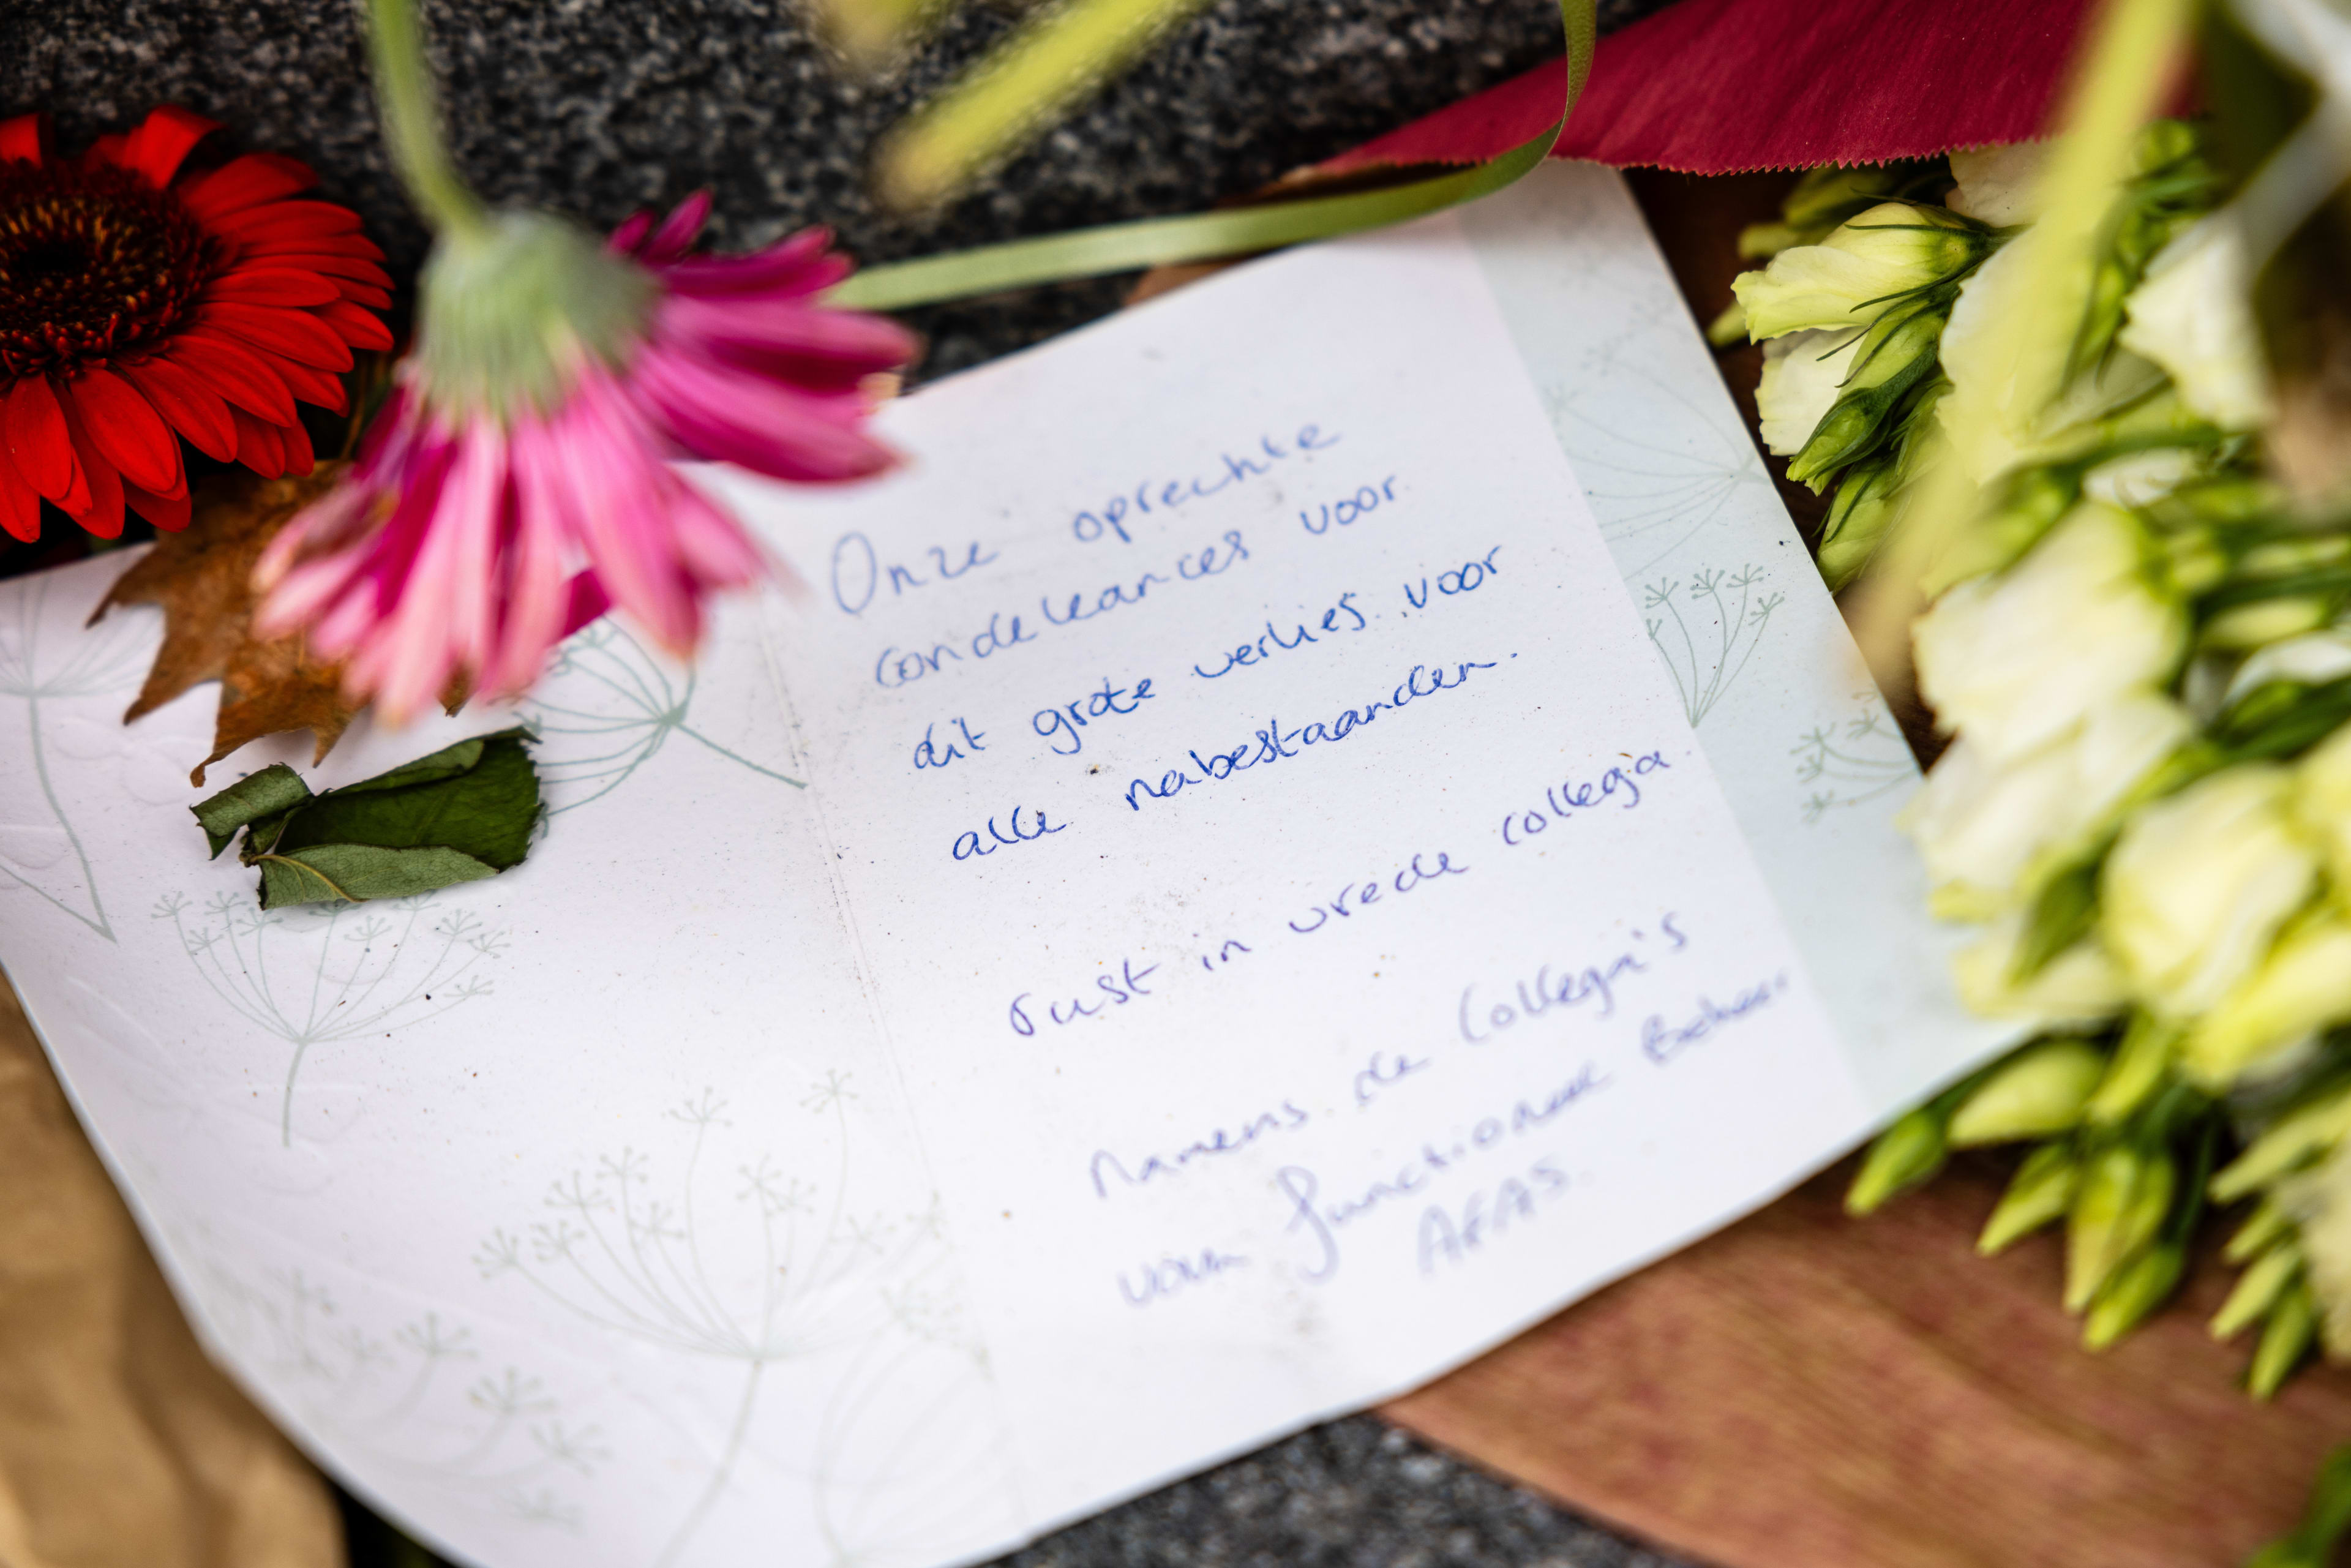 Onze oprechte
condeleances voor
dit grote verlies voor
alle nabestaanden.
rust in vrede collega.
Namens de Collega's
van functioneel Beheer
AFAS.